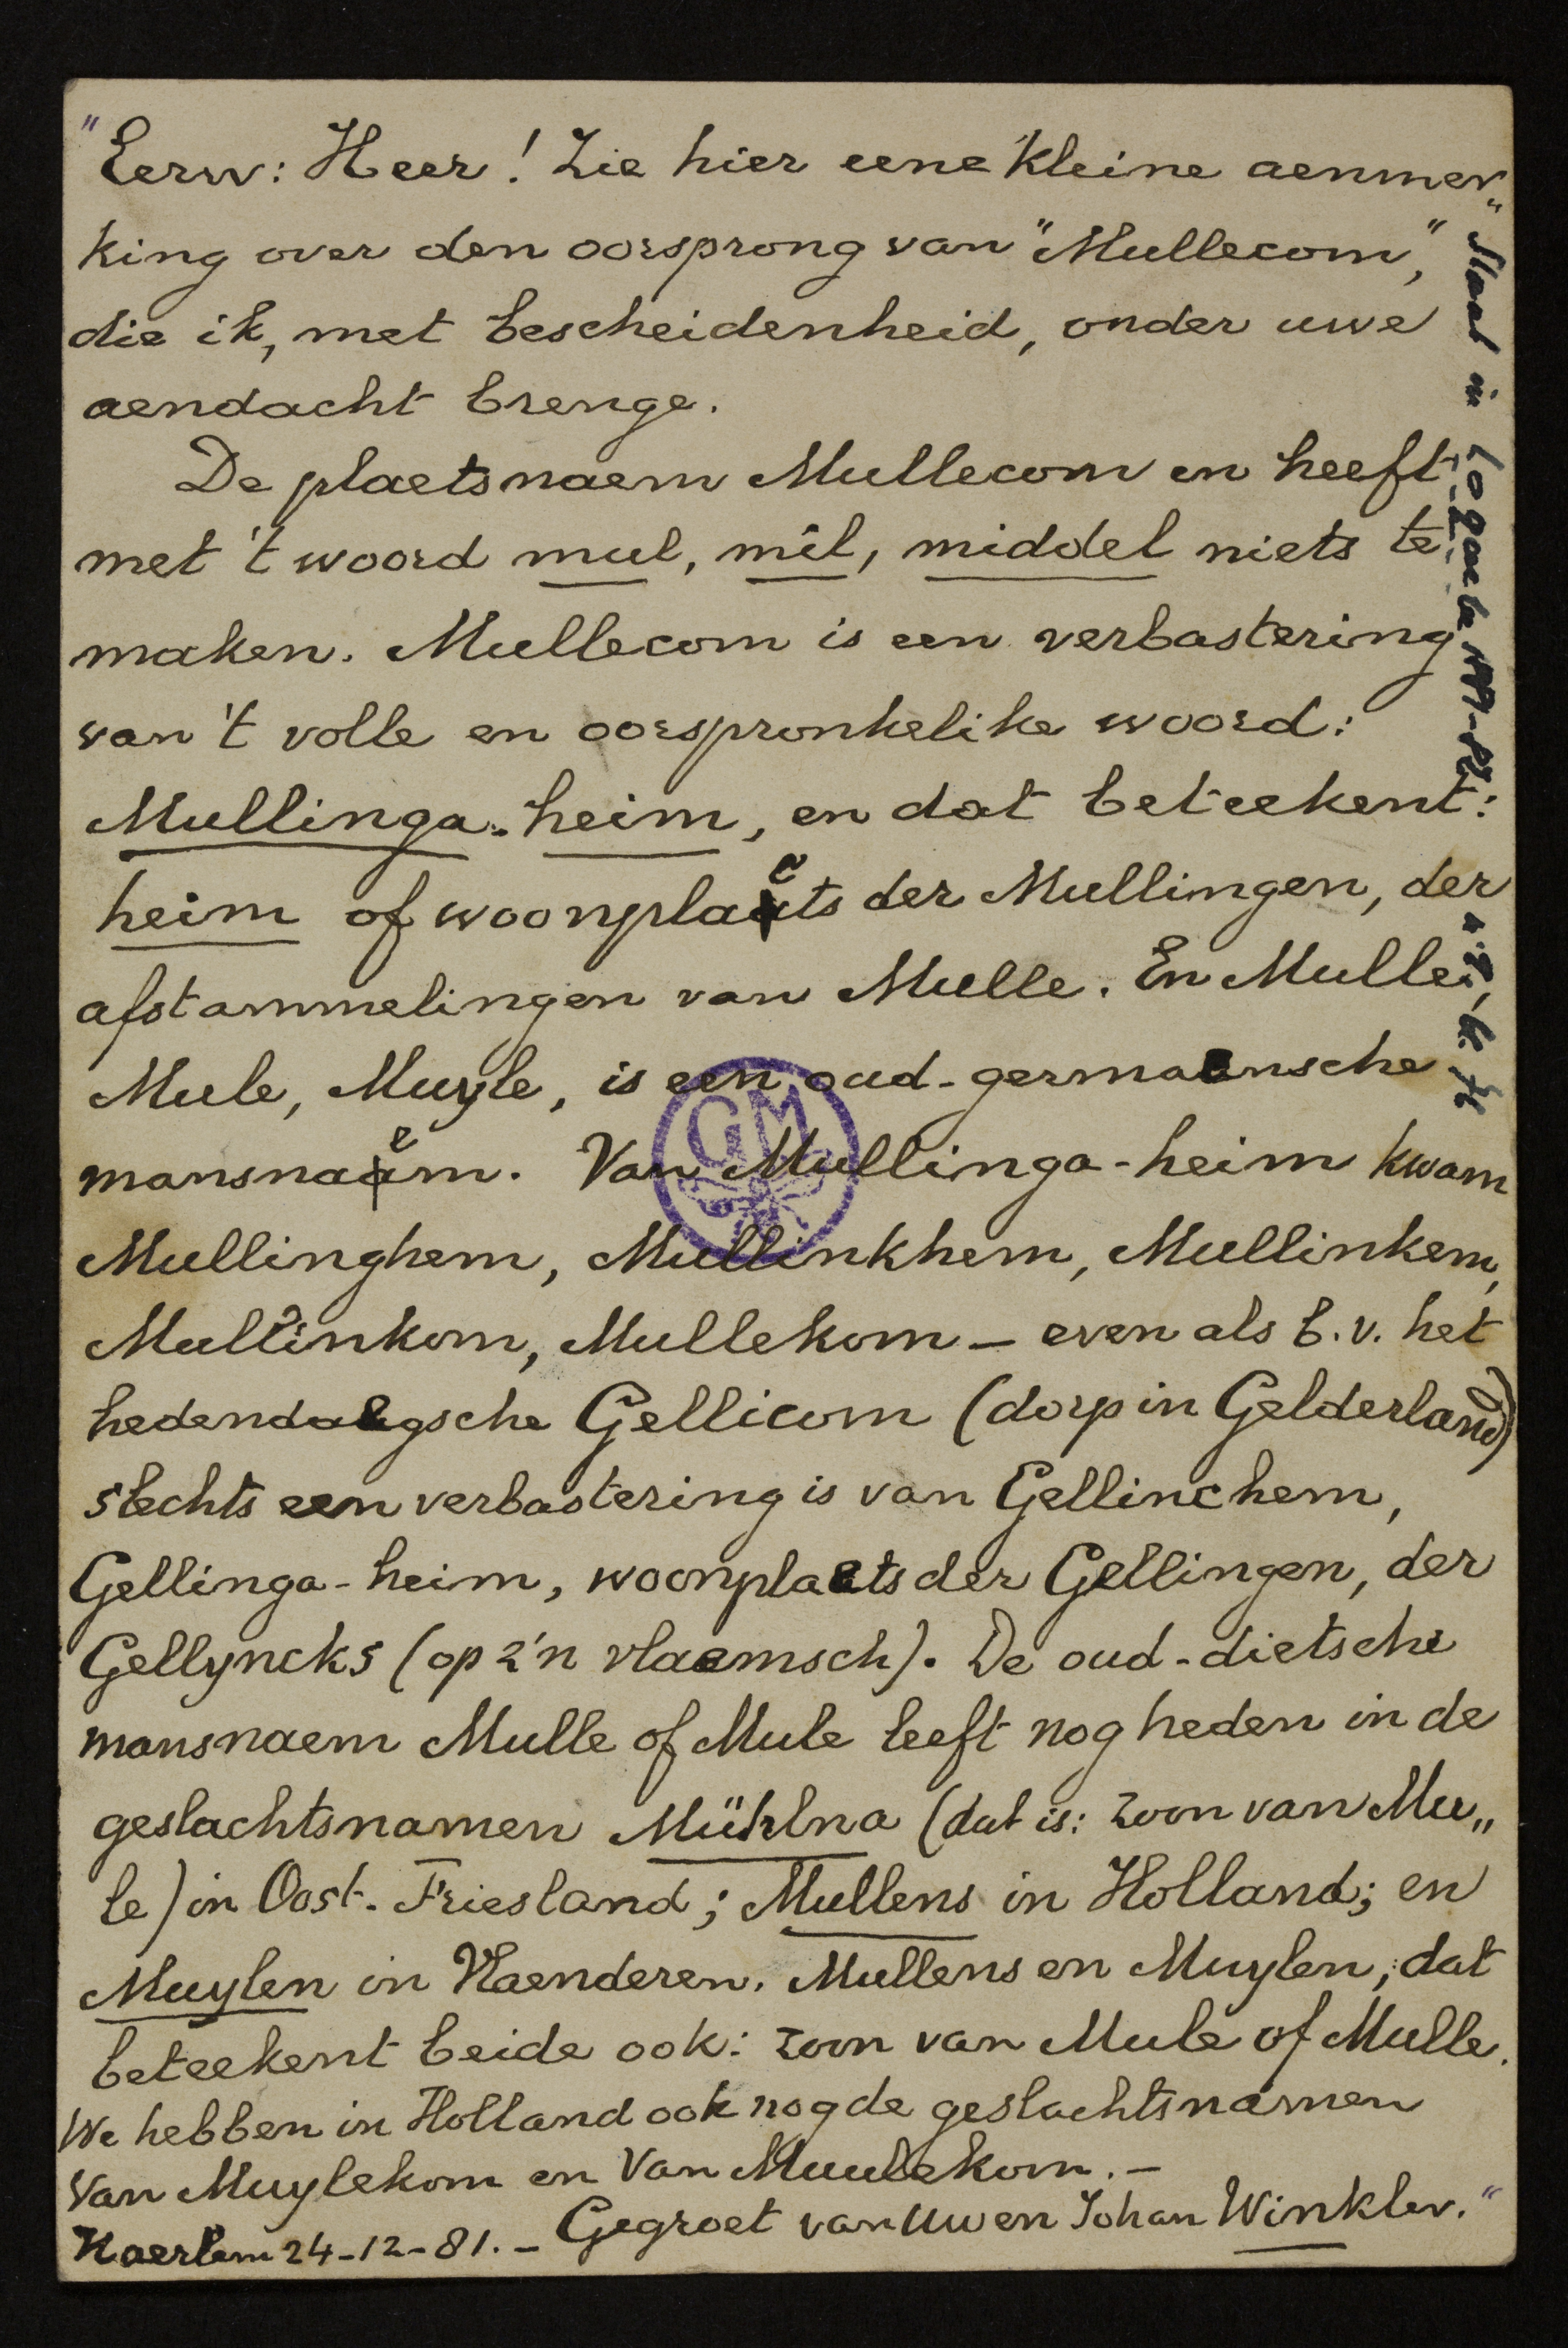 "Eerw: Heer! Zie hier eene kleine aenmer„
king over den oorsprong van "Mullecom",
die ik, met bescheidenheid, onder uwe
aendacht brenge.
De plaetsnaem Mullecom en heeft
met 't woord mul, mil, middel niets te
maken. Mullecom is een verbastering
van 't volle en oorspronkelike woord:
Mullinga-heim, en dat beteekent:
heim of woonplaets der Mullingen, der
afstammelingen van Mulle. En Mulle,
Mule, Muyle, is een oud-germaensche
mansnaem. Van Mullinga-heim kwam
Mullinghem, Mullinkhem, Mullinkem,
Mullinkom, Mullekom – even als b.v. het
hedendaegsche Gellicom (dorp in Gelderland)
slechts een verbastering is van Gellinchem,
Gellinga-heim, woonplaets der Gellingen, der
Gellyncks (op z'n vlaemsch). De oud-dietsche
mansnaem Mulle of Mule leeft nog heden in de
geslachtsnamen Mühlna (dat is: zoon van Mu„
le) in Oost-Friesland; Mullens in Holland; en
Muylen in Vlaenderen. Mullens en Muylen, dat
beteekent beide ook: zoon van Mule of Mulle.
We hebben in Holland ook nog de geslachtsnamen
Van Muylekom en Van Muulekom. –
Haerlem 24-12-81. – Gegroet van Uwen Johan Winkler."
Staat in Loquela
GM